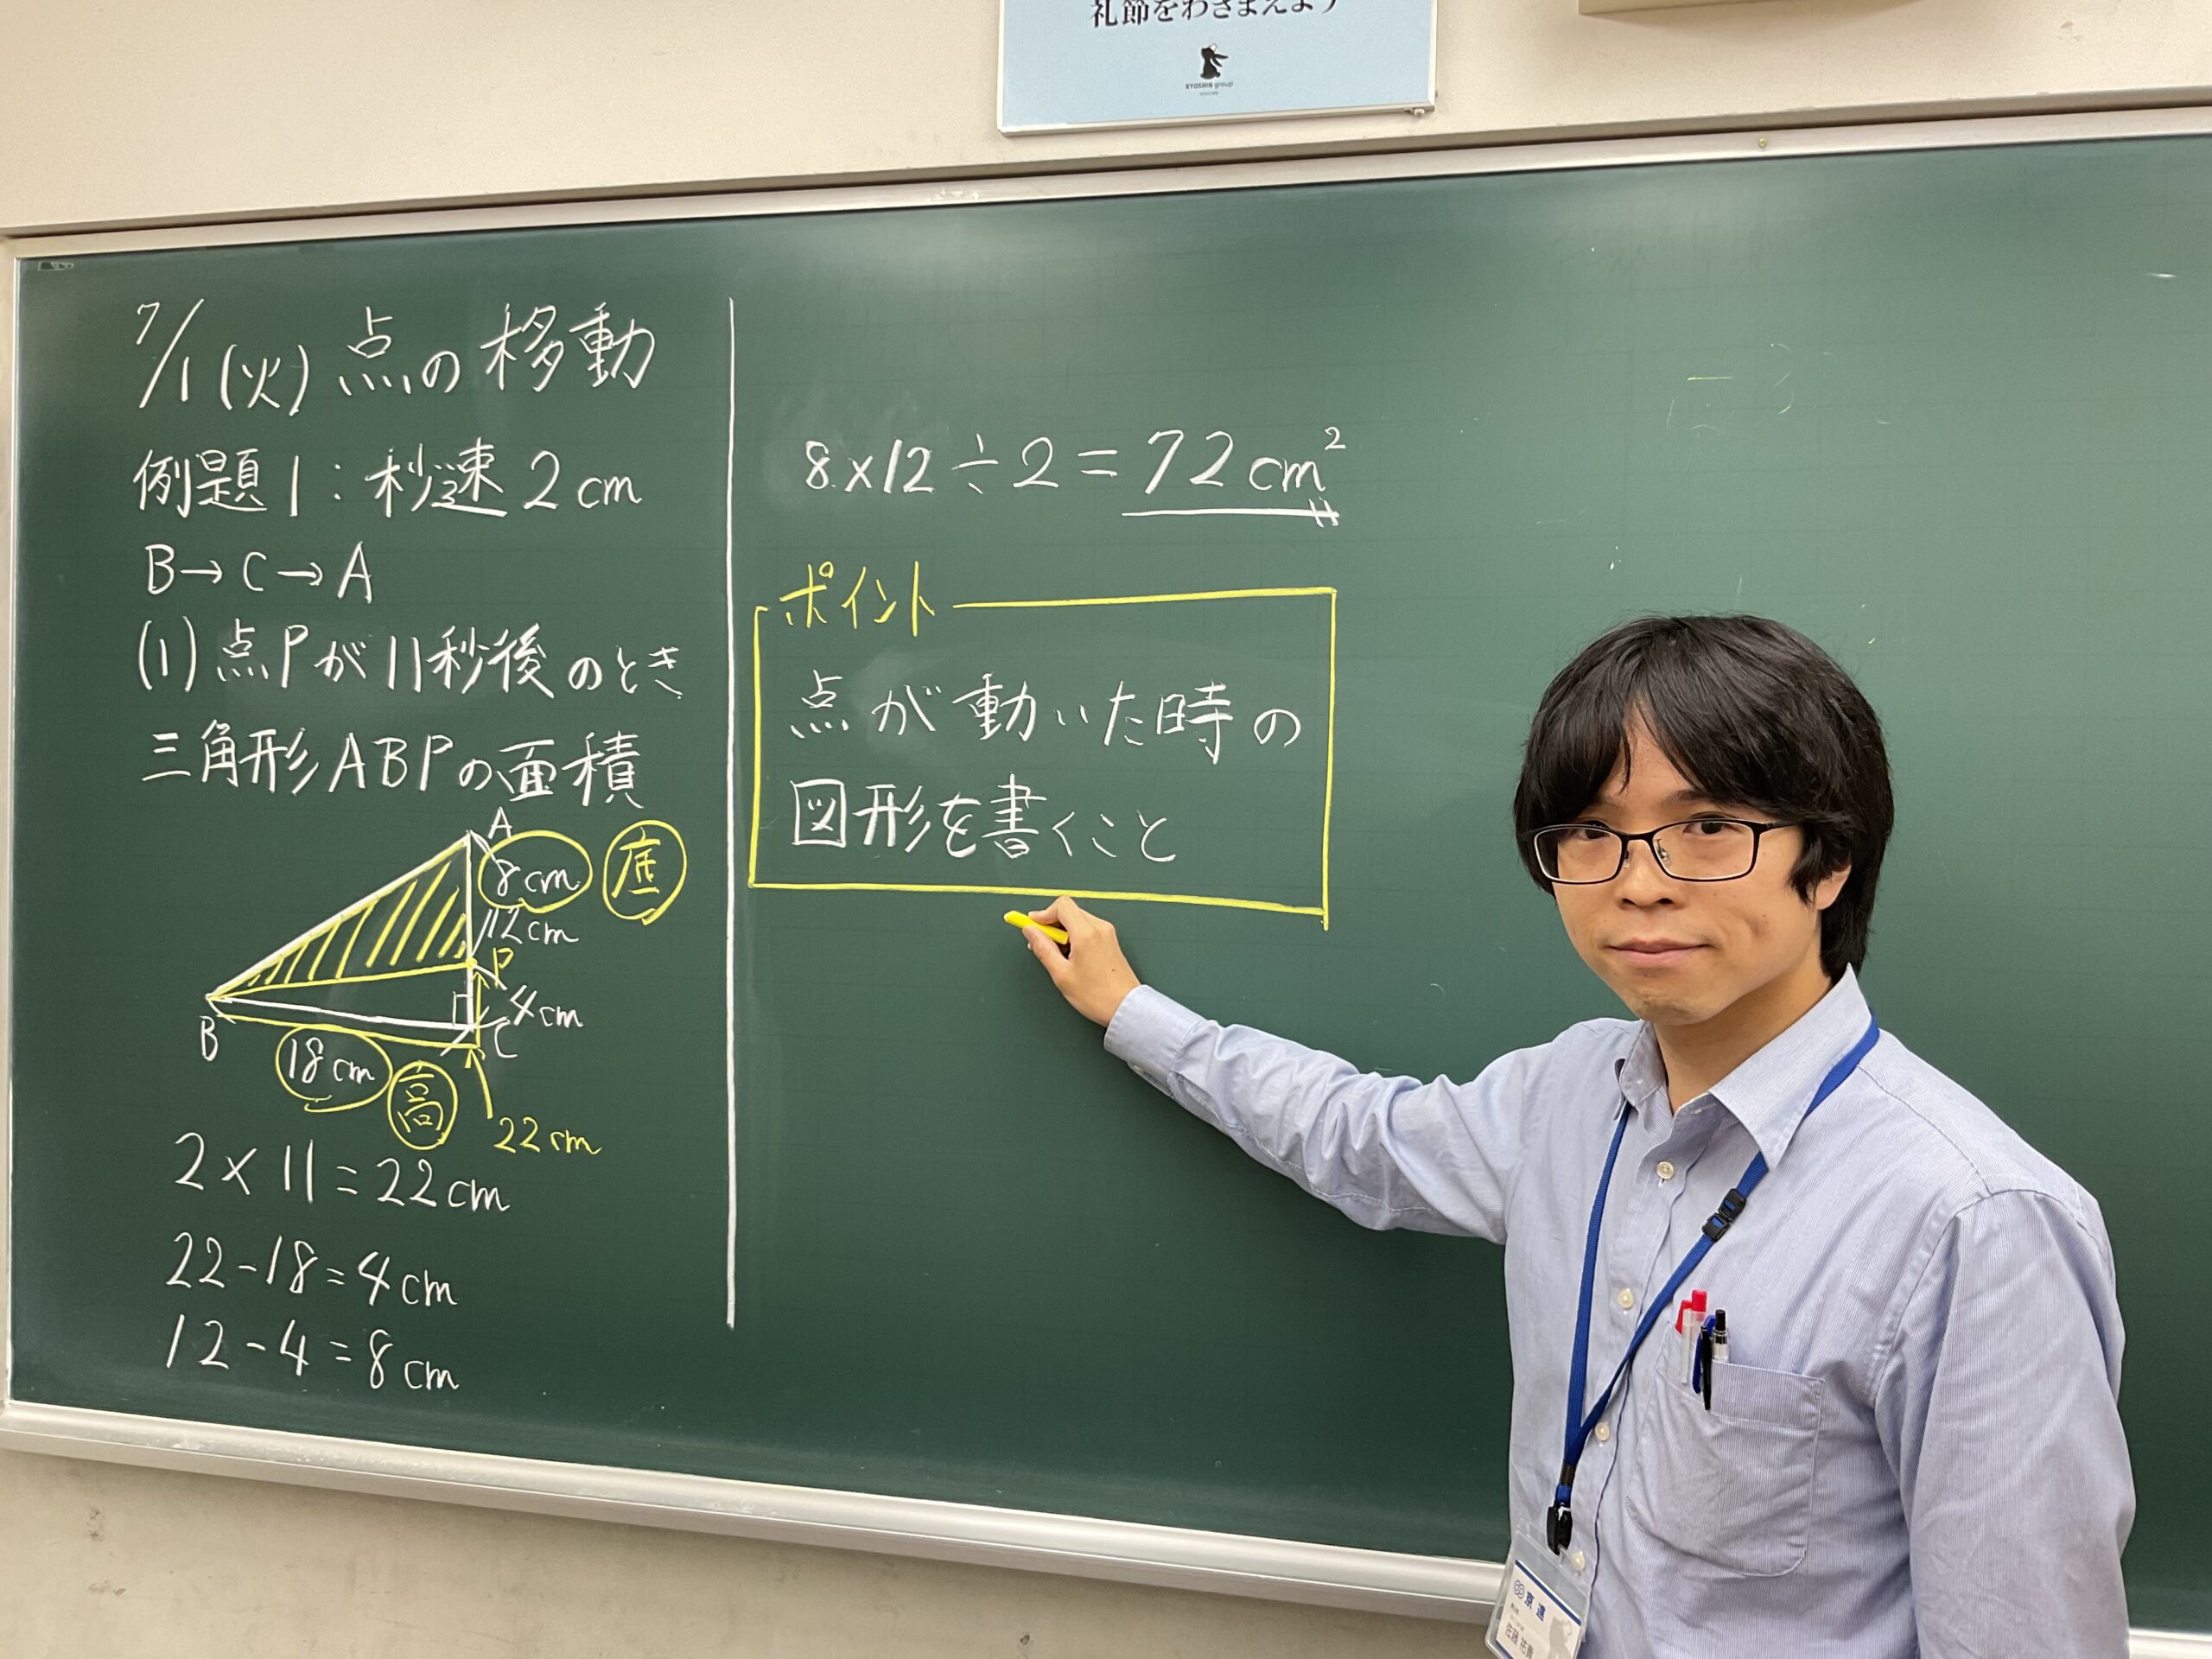 礼節をわきまえよう
KYOSHIN group
7/1(火) 点の移動
例題1:秒速2cm
B→C→A
(1)点Pが11秒後のとき
三角形ABPの面積
A
8cm 底
12cm
P
4cm
B
C
18cm 高
22cm
2×11=22cm
22-18=4cm
12-4=8cm
8×12÷2=72cm²
ポイント
点が動いた時の
図形を書くこと
京進